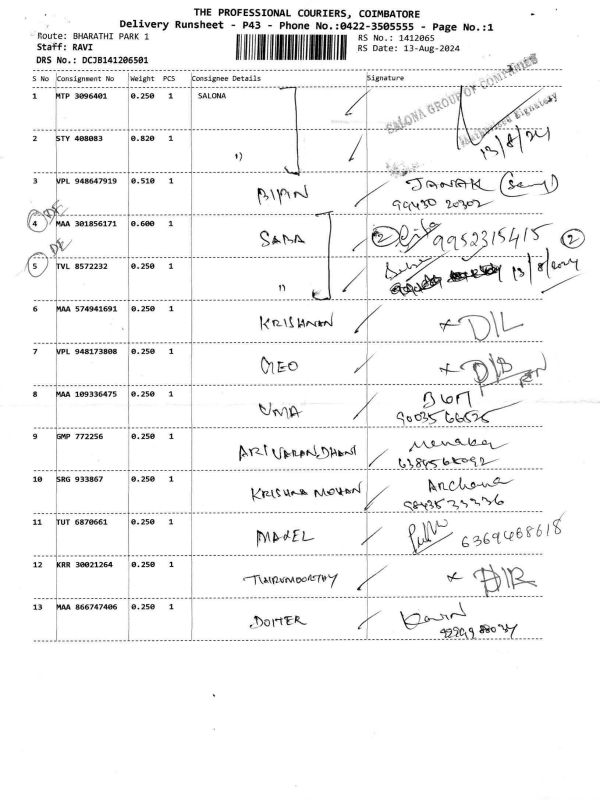 THE PROFESSIONAL COURIERS, COIMBATORE
Delivery Runsheet - P43 - Phone No.:0422-3505555 - Page No.:1
Route: BHARATHI PARK 1
RS No.: 1412065
Staff: RAVI
RS Date: 13-Aug-2024
DRS No.: DCJB141206501
S No Consignment No Weight PCS Consignee Details Signature
1 MTP 3096401 0.250 1 SALONA SALONA GROUP OF COMPANIES
Authorised Signatory
2 STY 408083 0.820 1 13/8/24
3 VPL 948647919 0.510 1 BIPIN JANAK
99430 20302
DE
4 MAA 301856171 0.600 1 SABA 2 9952315415 2
DE
5 TVL 8572232 0.250 1 13/8/2024
6 MAA 574941691 0.250 1 KRISHNAN x D/L
7 VPL 948173808 0.250 1 GEO x
8 MAA 109336475 0.250 1 UMA
9 GMP 772256 0.250 1 ARIVARANDHANI Menaka
10 SRG 933867 0.250 1 KRISHNA MOHAN Archana
11 TUT 6870661 0.250 1 6369468618
12 KRR 30021264 0.250 1 THIRUMOORTHY x
13 MAA 866747406 0.250 1 Kavin